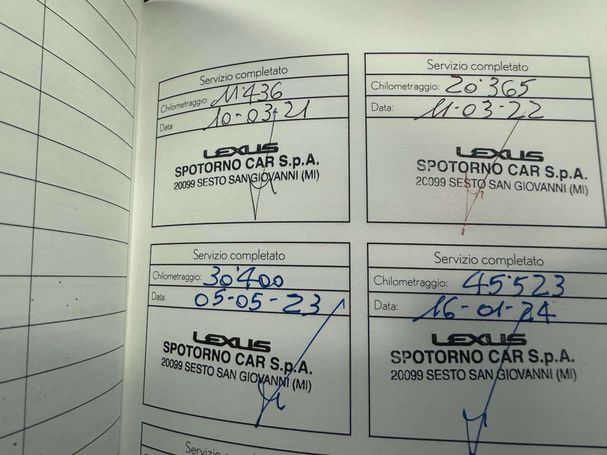 Servizio completato
Chilometraggio: 11'436
Data: 10-03-21
LEXUS
SPOTORNO CAR S.p.A.
20099 SESTO SAN GIOVANNI (MI)
Servizio completato
Chilometraggio: 20'365
Data: 11-03-22
LEXUS
SPOTORNO CAR S.p.A.
20099 SESTO SAN GIOVANNI (MI)
Servizio completato
Chilometraggio: 30'400
Data: 05-05-23
LEXUS
SPOTORNO CAR S.p.A.
20099 SESTO SAN GIOVANNI (MI)
Servizio completato
Chilometraggio: 45'523
Data: 16-01-24
LEXUS
SPOTORNO CAR S.p.A.
20099 SESTO SAN GIOVANNI (MI)
Servizio completato